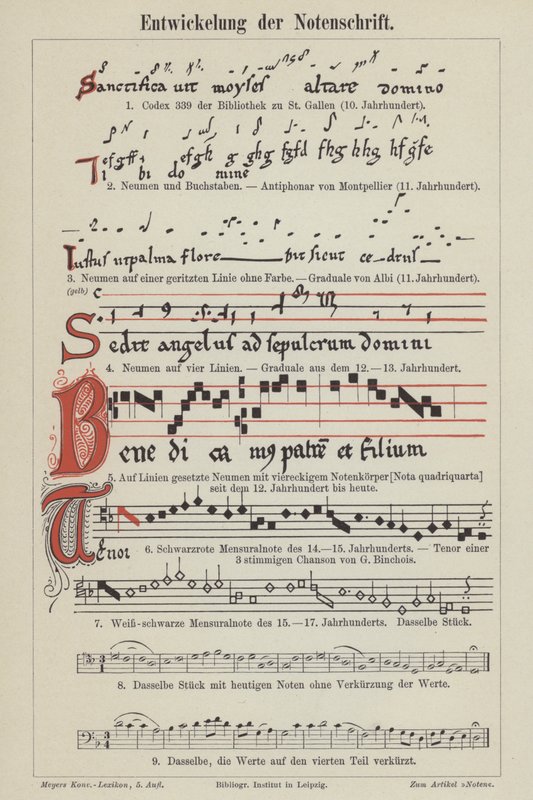 Entwickelung der Notenschrift.
Sanctifica uit moyses altare domino
1. Codex 339 der Bibliothek zu St. Gallen (10. Jahrhundert).
Tibi domine
2. Neumen und Buchstaben. — Antiphonar von Montpellier (11. Jahrhundert).
Iustus utpalma flore bit sicut cedrus
3. Neumen auf einer geritzten Linie ohne Farbe. — Graduale von Albi (11. Jahrhundert).
(gelb) c
Sedit angelus ad sepulcrum domini
4. Neumen auf vier Linien. — Graduale aus dem 12.—13. Jahrhundert.
Bene di ca patrē et filium
5. Auf Linien gesetzte Neumen mit viereckigem Notenkörper [Nota quadriquarta]
seit dem 12. Jahrhundert bis heute.
Tenor
6. Schwarzrote Mensuralnote des 14.—15. Jahrhunderts. — Tenor einer
3 stimmigen Chanson von G. Binchois.
7. Weiß-schwarze Mensuralnote des 15.—17. Jahrhunderts. Dasselbe Stück.
8. Dasselbe Stück mit heutigen Noten ohne Verkürzung der Werte.
9. Dasselbe, die Werte auf den vierten Teil verkürzt.
Meyers Konv.-Lexikon, 5. Aufl. Bibliogr. Institut in Leipzig. Zum Artikel »Noten«.